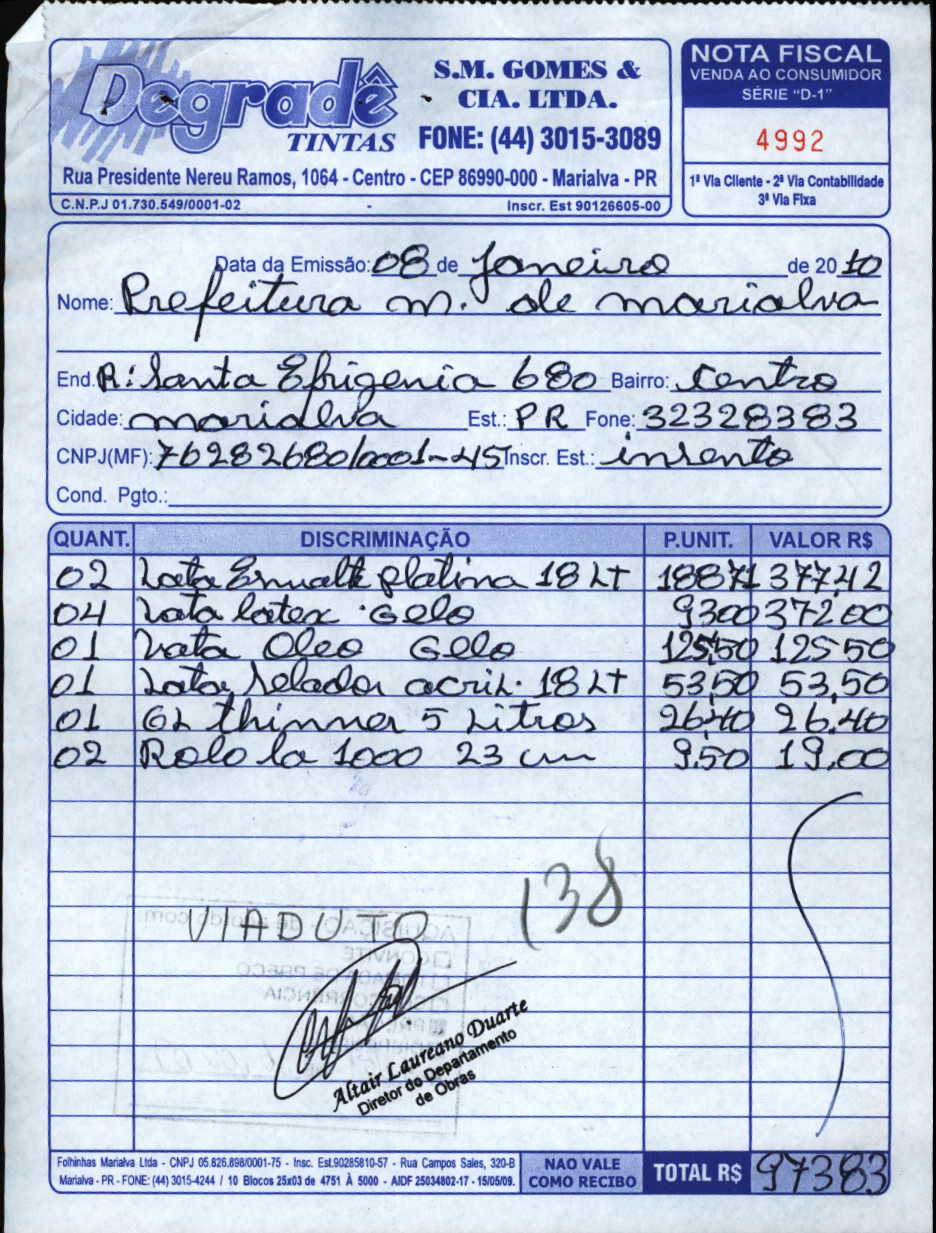 Degradê
TINTAS
S.M. GOMES &
CIA. LTDA.
FONE: (44) 3015-3089
Rua Presidente Nereu Ramos, 1064 - Centro - CEP 86990-000 - Marialva - PR
C.N.P.J 01.730.549/0001-02 - Inscr. Est 90126605-00
NOTA FISCAL
VENDA AO CONSUMIDOR
SÉRIE "D-1"
4992
1ª Via Cliente - 2ª Via Contabilidade
3ª Via Fixa
Data da Emissão: 08 de Janeiro de 2010
Nome: Prefeitura m. de marialva
End. R: Santa Efigenia 680 Bairro: Centro
Cidade: marialva Est.: PR Fone: 32328383
CNPJ(MF): 76282680/0001-45 Inscr. Est.: insento
Cond. Pgto.:
QUANT. DISCRIMINAÇÃO P.UNIT. VALOR R$
02 Lata Esmalte platina 18 LT 18871 377,42
04 Lata latex Gelo 9300 372,00
01 Lata Oleo Gelo 125,50 125 50
01 Lata Selador acril. 18 LT 53,50 53,50
01 GL thinner 5 Litros 26,40 26,40
02 Rolo la 1000 23 cm 9.50 19,00
138
VIADUTO
AQUISIÇÃO
CONVITE
Altair Laureano Duarte
Diretor do Departamento
de Obras
Folhinhas Marialva Ltda - CNPJ 05.826.898/0001-75 - Insc. Est.90285810-57 - Rua Campos Sales, 320-B
Marialva - PR - FONE: (44) 3015-4244 / 10 Blocos 25x03 de 4751 À 5000 - AIDF 25034802-17 - 15/05/09.
NAO VALE
COMO RECIBO
TOTAL R$ 97383